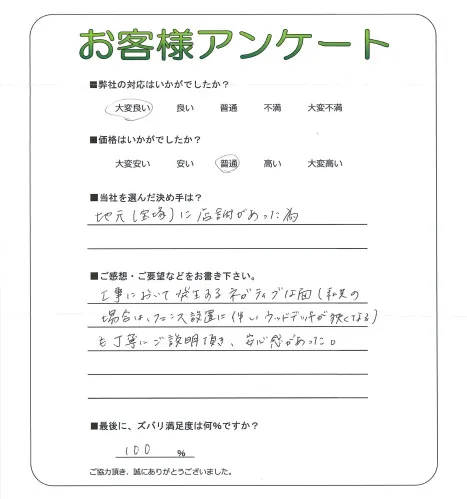 お客様アンケート
■弊社の対応はいかがでしたか？
大変良い 良い 普通 不満 大変不満
■価格はいかがでしたか？
大変安い 安い 普通 高い 大変高い
■当社を選んだ決め手は？
地元(宝塚)に店舗があった為
■ご感想・ご要望などをお書き下さい。
工事において発生するネガティブな面(私共の
場合は、フェンス設置に伴いウッドデッキが狭くなる)
も丁寧にご説明頂き、安心感があった。
■最後に、ズバリ満足度は何％ですか？
100 ％
ご協力頂き、誠にありがとうございました。